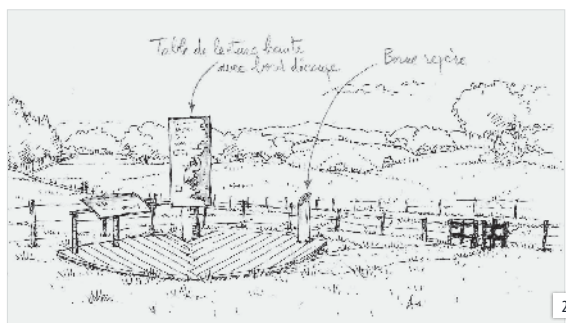 Table de lecture haute
avec bord découpé
Borne repère
2